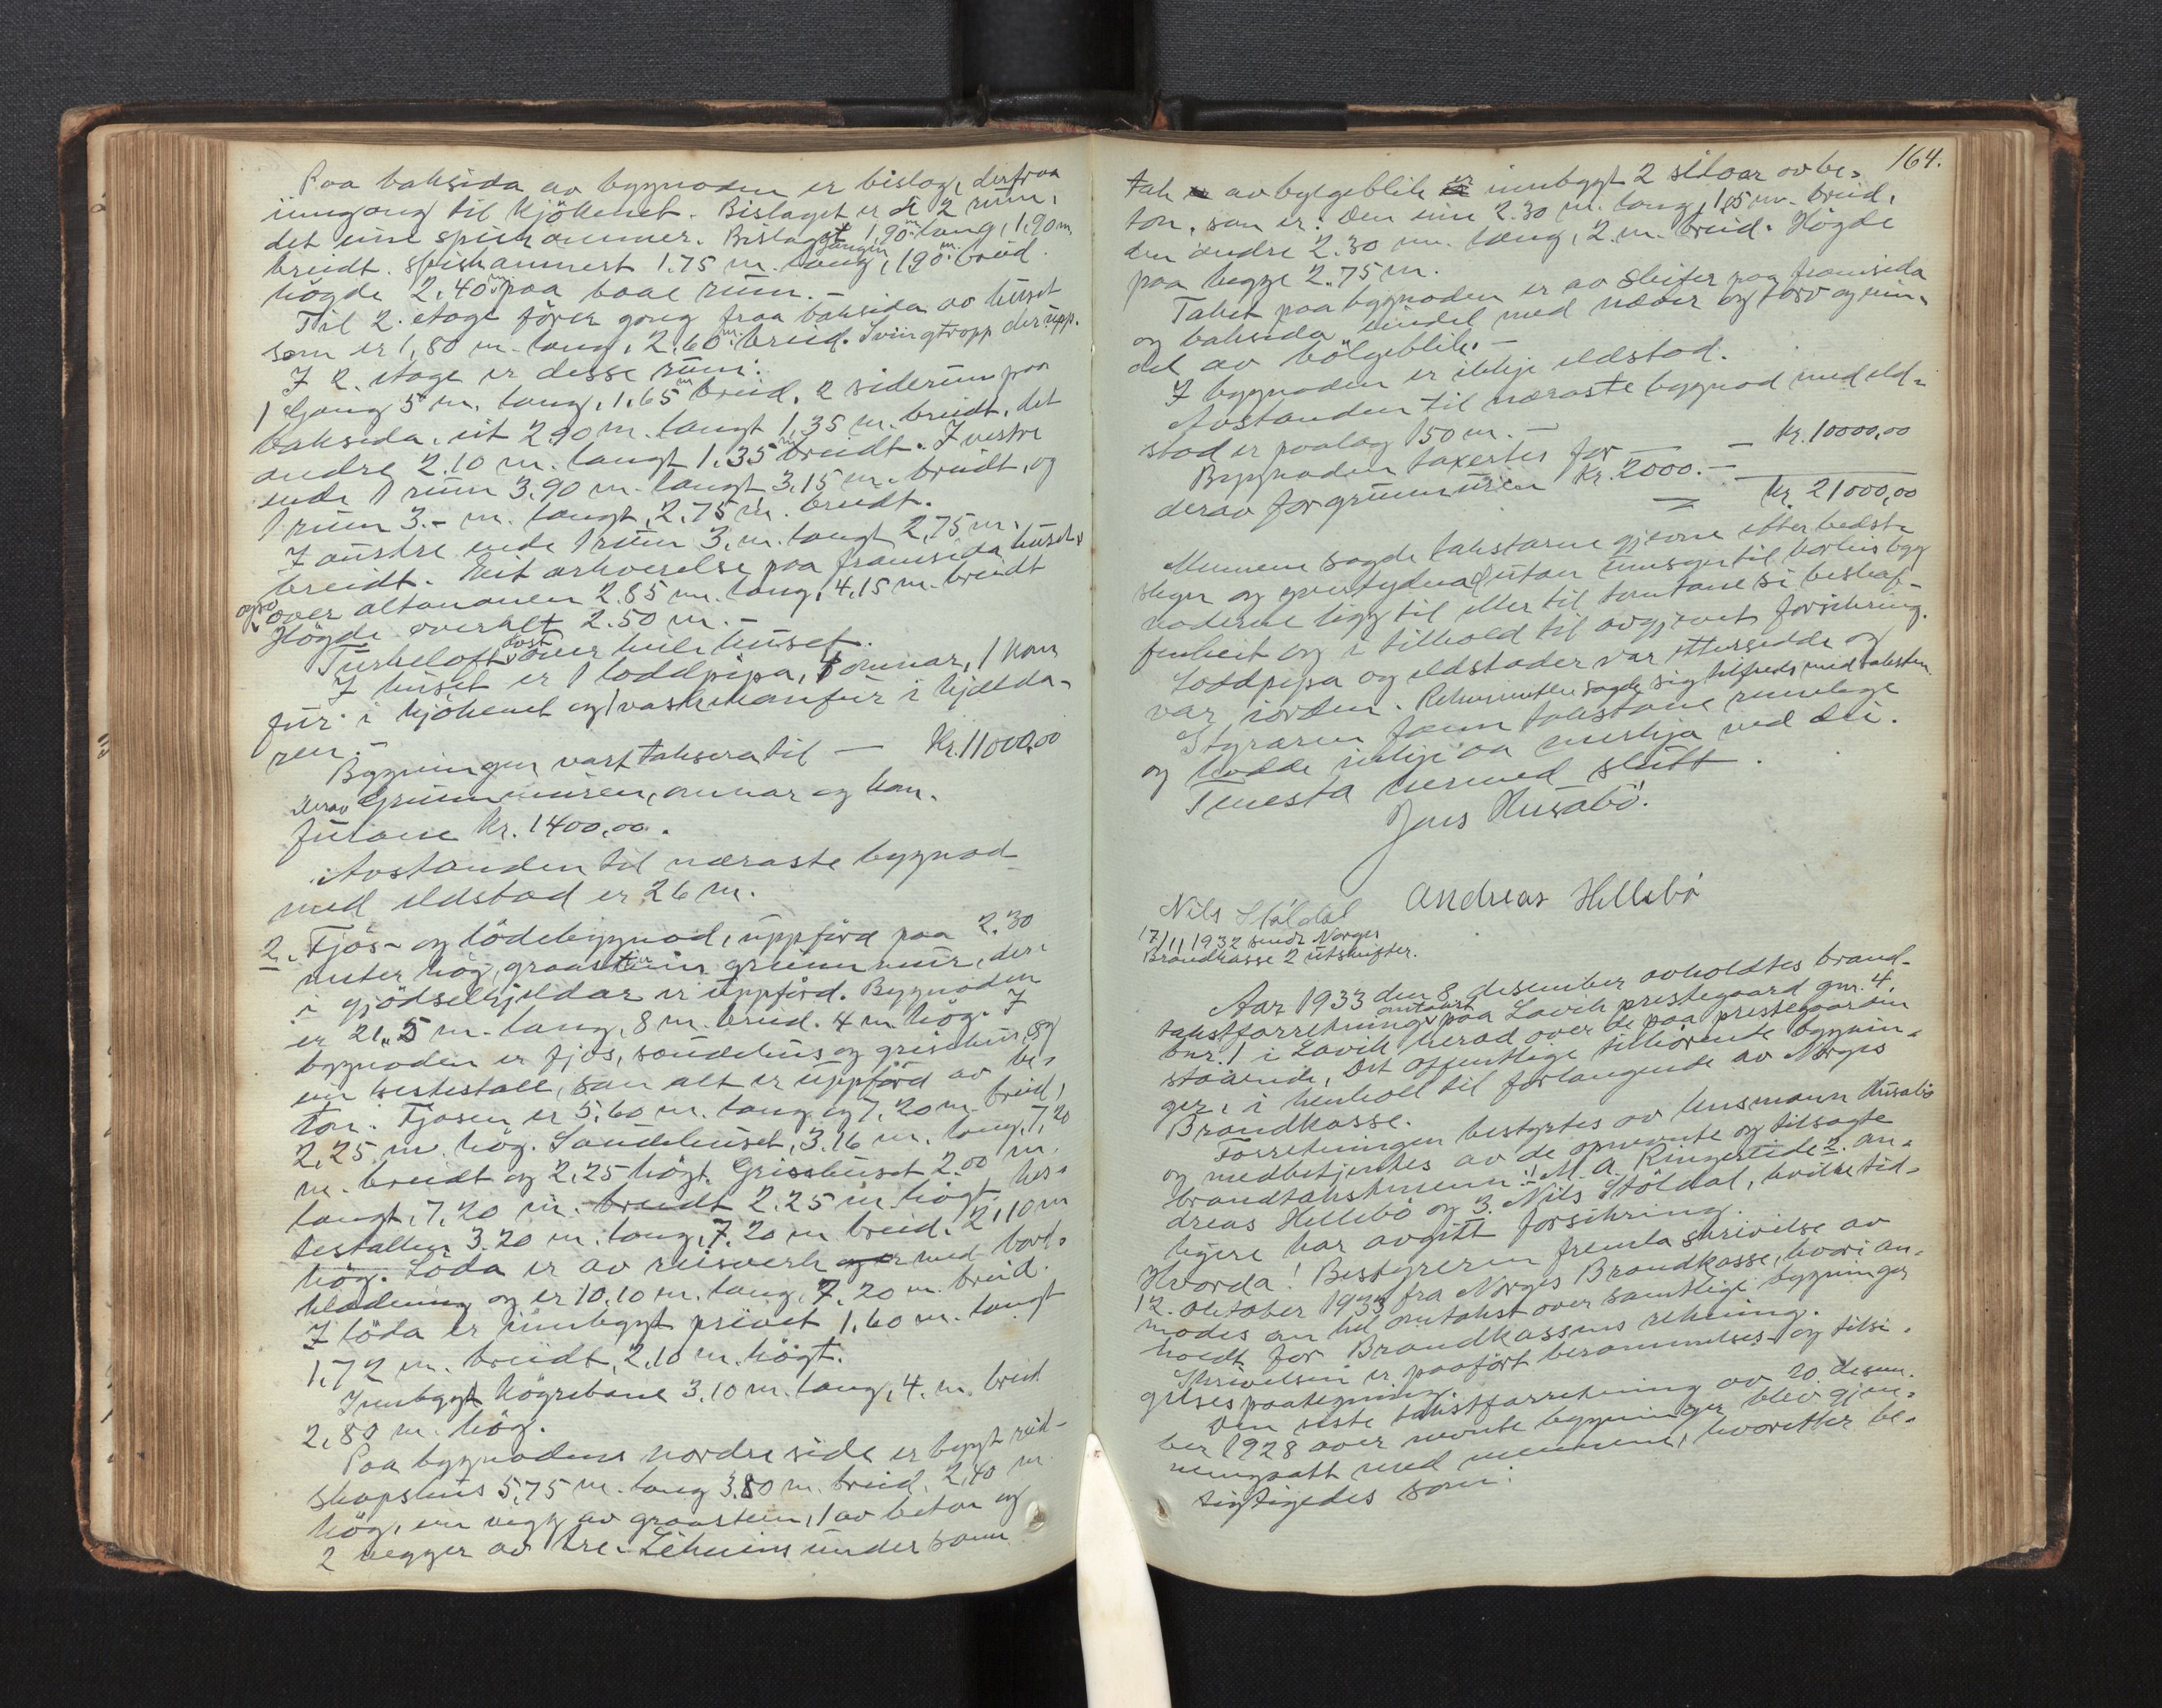 Paa baksida av bygnaden er bislag, derfraa
inngang til kjökenet. Bislaget er 2 rum,
det eine spiskammer. Bislagsgangen 1,90 m. lang, 1,90 m.
breidt. Spiskammert 1.75 m. lang, 190 m. breid.
högde 2,40 m paa baae rum. —
Til 2. etage förer gang fraa baksida av huset
som er 1,80 m. lang, 2,60 m. breid. Svingtropp der upp.
I 2. etage er desse rum:
1 Gang 5 m. lang, 1,65 m breid, 2 siderum paa
baksida, eit 2.90 m. langt 1,35 m. breidt, det
andre 2.10 m. langt 1.35 m breidt. I vestre
ende 1 rum 3,90 m. langt 3,15 m. breidt, og
1 rum 3.- m. langt, 2,75 m. breidt.
I austre ende 1 rum 3, m. langt 2,75 m.
breidt. Eit arkverelse paa framsida huset
ogso over altananen 2.85 m. lang, 4,15 m. breidt
Högde overalt 2.50 m. —
Turkeloft over heile huset.
I huset er 1 loddpipa, 4 omnar, 1 kom
fur i kjökenet og 1 vaskekomfur i kjelda-
ren. —
Bygningen vart taksera til — Kr. 11000,00
derav Grunnmuren, omnar og kom-
furane kr. 1400,00.
Avstanden til næraste bygnad
med eldstad er 26 m.
2. Fjös- og lödebygnad, uppförd paa 2.30
meter hög, graasteins grunnmur, der
i gjödselkjeldar er uppförd. Bygnaden
er 21,5 m. lang, 8 m. breid. 4 m hög. I
bygnaden er fjös, saudehus og grisehus, og
ein hestestall, som alt er uppförd av be-
ton. Fjosen er 5,60 m. lang og 7,20 m. breid,
2,25 m. hög. Saudehuset, 3.16 m. lang, 7,20
m. breidt og 2,25 högt. Grisehuset 2.00 m.
langt, 7,20 m. breidt 2.25 m högt. hes-
testallen 3.20 m. lang, 7.20 m breid. 2,10 m
hög. Löda er av reisverk med bord-
kledning og er 10,10 m. lang, 7,20 m. breid.
I löda er innbygt privet 1,60 m. langt
1,72 m. breidt, 2,10 m. högt.
Innbygt högrebane 3,10 m. lang, 4. m. breid
2,80 m. hög.
Paa bygnadens nordre side er bygt reid-
skapshus 5,75 m. lang 3,80 m. breid, 2,40 m.
hög, ein vegg av graastein, 1 av beton og
2 vegger av tre. under samme
164.
tak av bylgeblik er innbygt 2 siloar av be-
ton, som er: Den eine 2.30 m. lang, 1,85 m. breid,
den andre 2.30 m. lang, 2. m. breid. Högde
paa begge 2.75 m.
Taket paa bygnaden er av skifer paa framsida
og baksida eindel med næver og torv og ein-
del av bölgeblik. —
I bygnaden er ikkje eldstad.
Avstanden til næraste bygnad med eld-
stad er paalag 150 m. —
Bygnaden taxertes for — — kr. 10000,00
derav for grunnmuren kr. 2000. —
= kr. 21000,00
Mennene sagde takstarne gjevne etter bedste
skjøn og overtydning utan umsyn til korleis byg
naderne ligg til eller til tomtane si beskaf-
fenheit og i tilhold til avgjevet forsikring.
Loddpipa og eldstader var ettersedde og
var i orden. Rekvirenten sagde sig tilfreds med taksten
Styraren fann takstane rimelege
og hadde inkje aa merkja ved dei.
Tenesta hermed slutt.
Jens Husabö.
Nils Stöldal Andreas Hellebö
17/11 1932 sendt Norges
Brandkasse 2 utskrifter.
Aar 1933 den 8. desember avholdtes brand-
takstforretning omtakst paa Lavik prestegaard gnr. 4,
bnr. 1 i Lavik herad over de paa prestegaarden
staaende, Det offentlige tilhörende bygnin-
ger, i henhold til forlangende av Norges
Brandkasse.
Forretningen bestyrtes av lensmann Husabö
og medbetjentes av de opnevnte og tilsagte
brandtakstmenn: 1. M. A. Ringereide 2. An-
dreas Hellebö og 3. Nils Stöldal, hvilke tid-
ligere har avgitt forsikring.
Hvorda! Bestyreren fremla skrivelse av
12. oktober 1933 fra Norges Brandkasse, hvori an-
modes om hel omtakst over samtlige bygninger
holdt for Brandkassens rekning.
Skrivelsen er paafört berammelses- og tilsi-
gelsespaategning.
Den siste takstforretning av 20. desem-
ber 1928 over nevnte bygninger blev gjen-
nemgaatt med mennene, hvoretter be-
sigtigedes som: